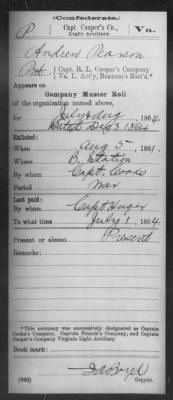 Confederate.
P Capt. Cooper's Co., Va.
Light Artillery.
Andrew
Capt. R. L. Cooper's Company
Va. L. Art'y, Braxton's Batt'n.*
Appears on
Company Muster Roll
of the organization named above,
for July & Aug, 1864.
Dated 3 1864
Enlisted:
When Aug 5, 1861.
Where B. Station
By whom Capt. Cooke
Period War
Last paid:
By whom Capt Huger
To what time July 1, 1864.
Present or absent Present
Remarks:
*This company was successively designated as Captain
Cooke's Company, Captain French's Company, and Captain
Cooper's Company Virginia Light Artillery.
Book mark:
(642)
Copyist.